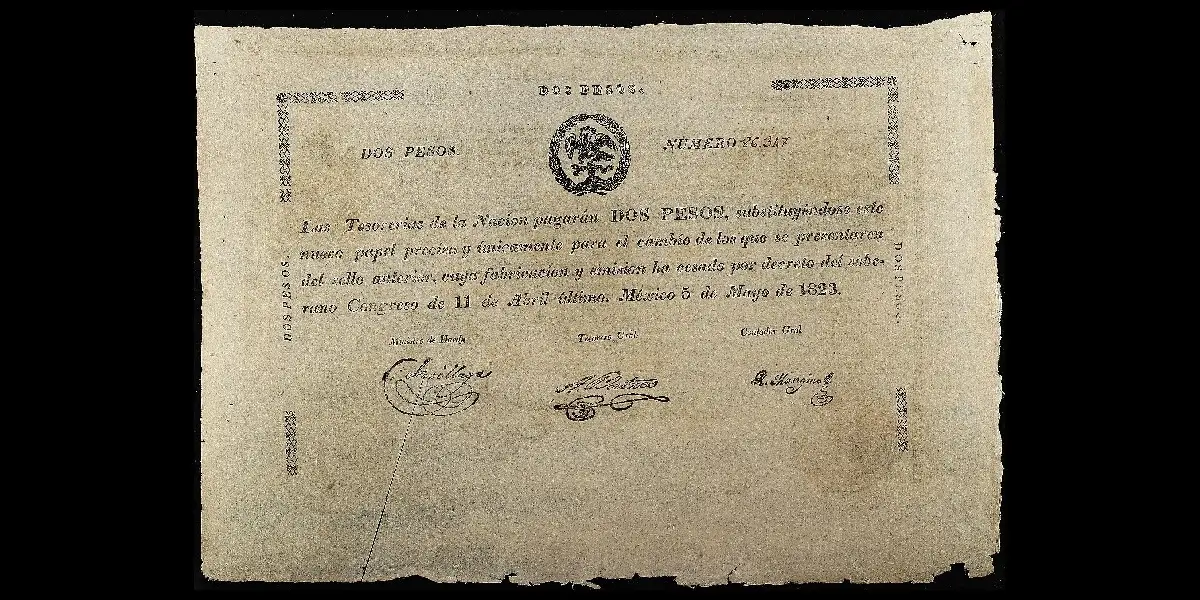 DOS PESOS.
DOS PESOS.
NÚMERO 26,317
Las Tesorerías de la Nacion pagarán DOS PESOS, substituyéndose este
nuevo papel precisa y únicamente para el cambio de los que se presentaren
del sello anterior, cuya fabricacion y emision ha cesado por decreto del sobe-
rano Congreso de 11 de Abril último. México 5 de Mayo de 1823.
DOS PESOS.
DOS PESOS.
Ministro de Hacda
Tesorero Gral
Contador Gral